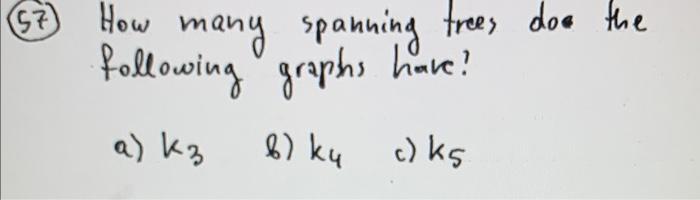 57) How many spanning trees doe the
following graphs have?
a) K3 b) K4 c) K5